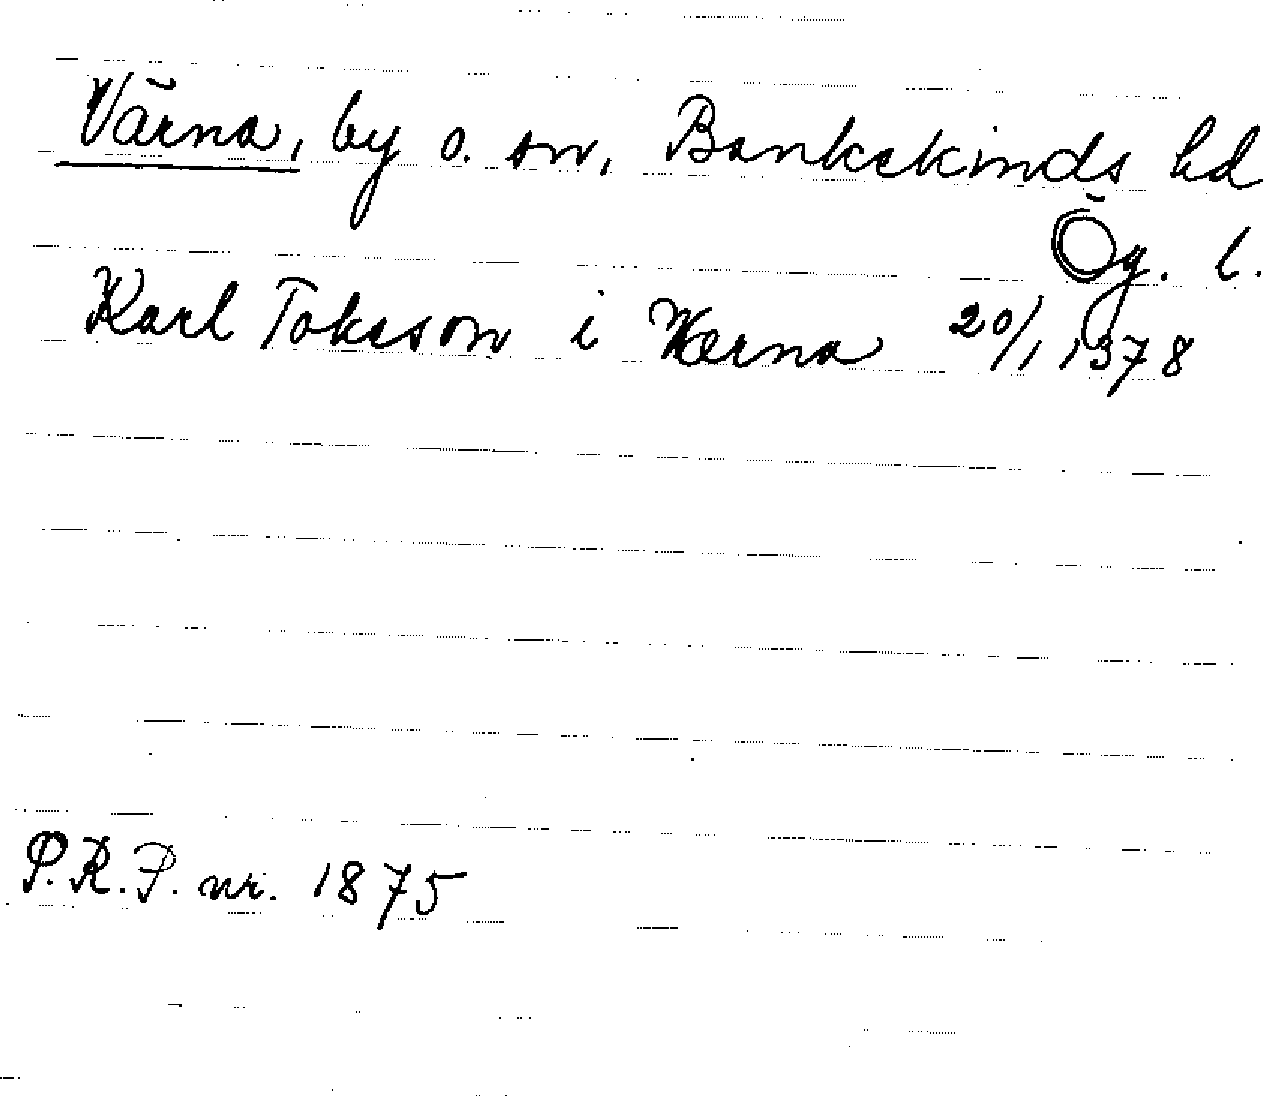 Värna, by o. sn, Bankekinds hd
Ög. l.
Karl Tokesson i Wærna 20/1 1378
P.R.P. nr. 1875